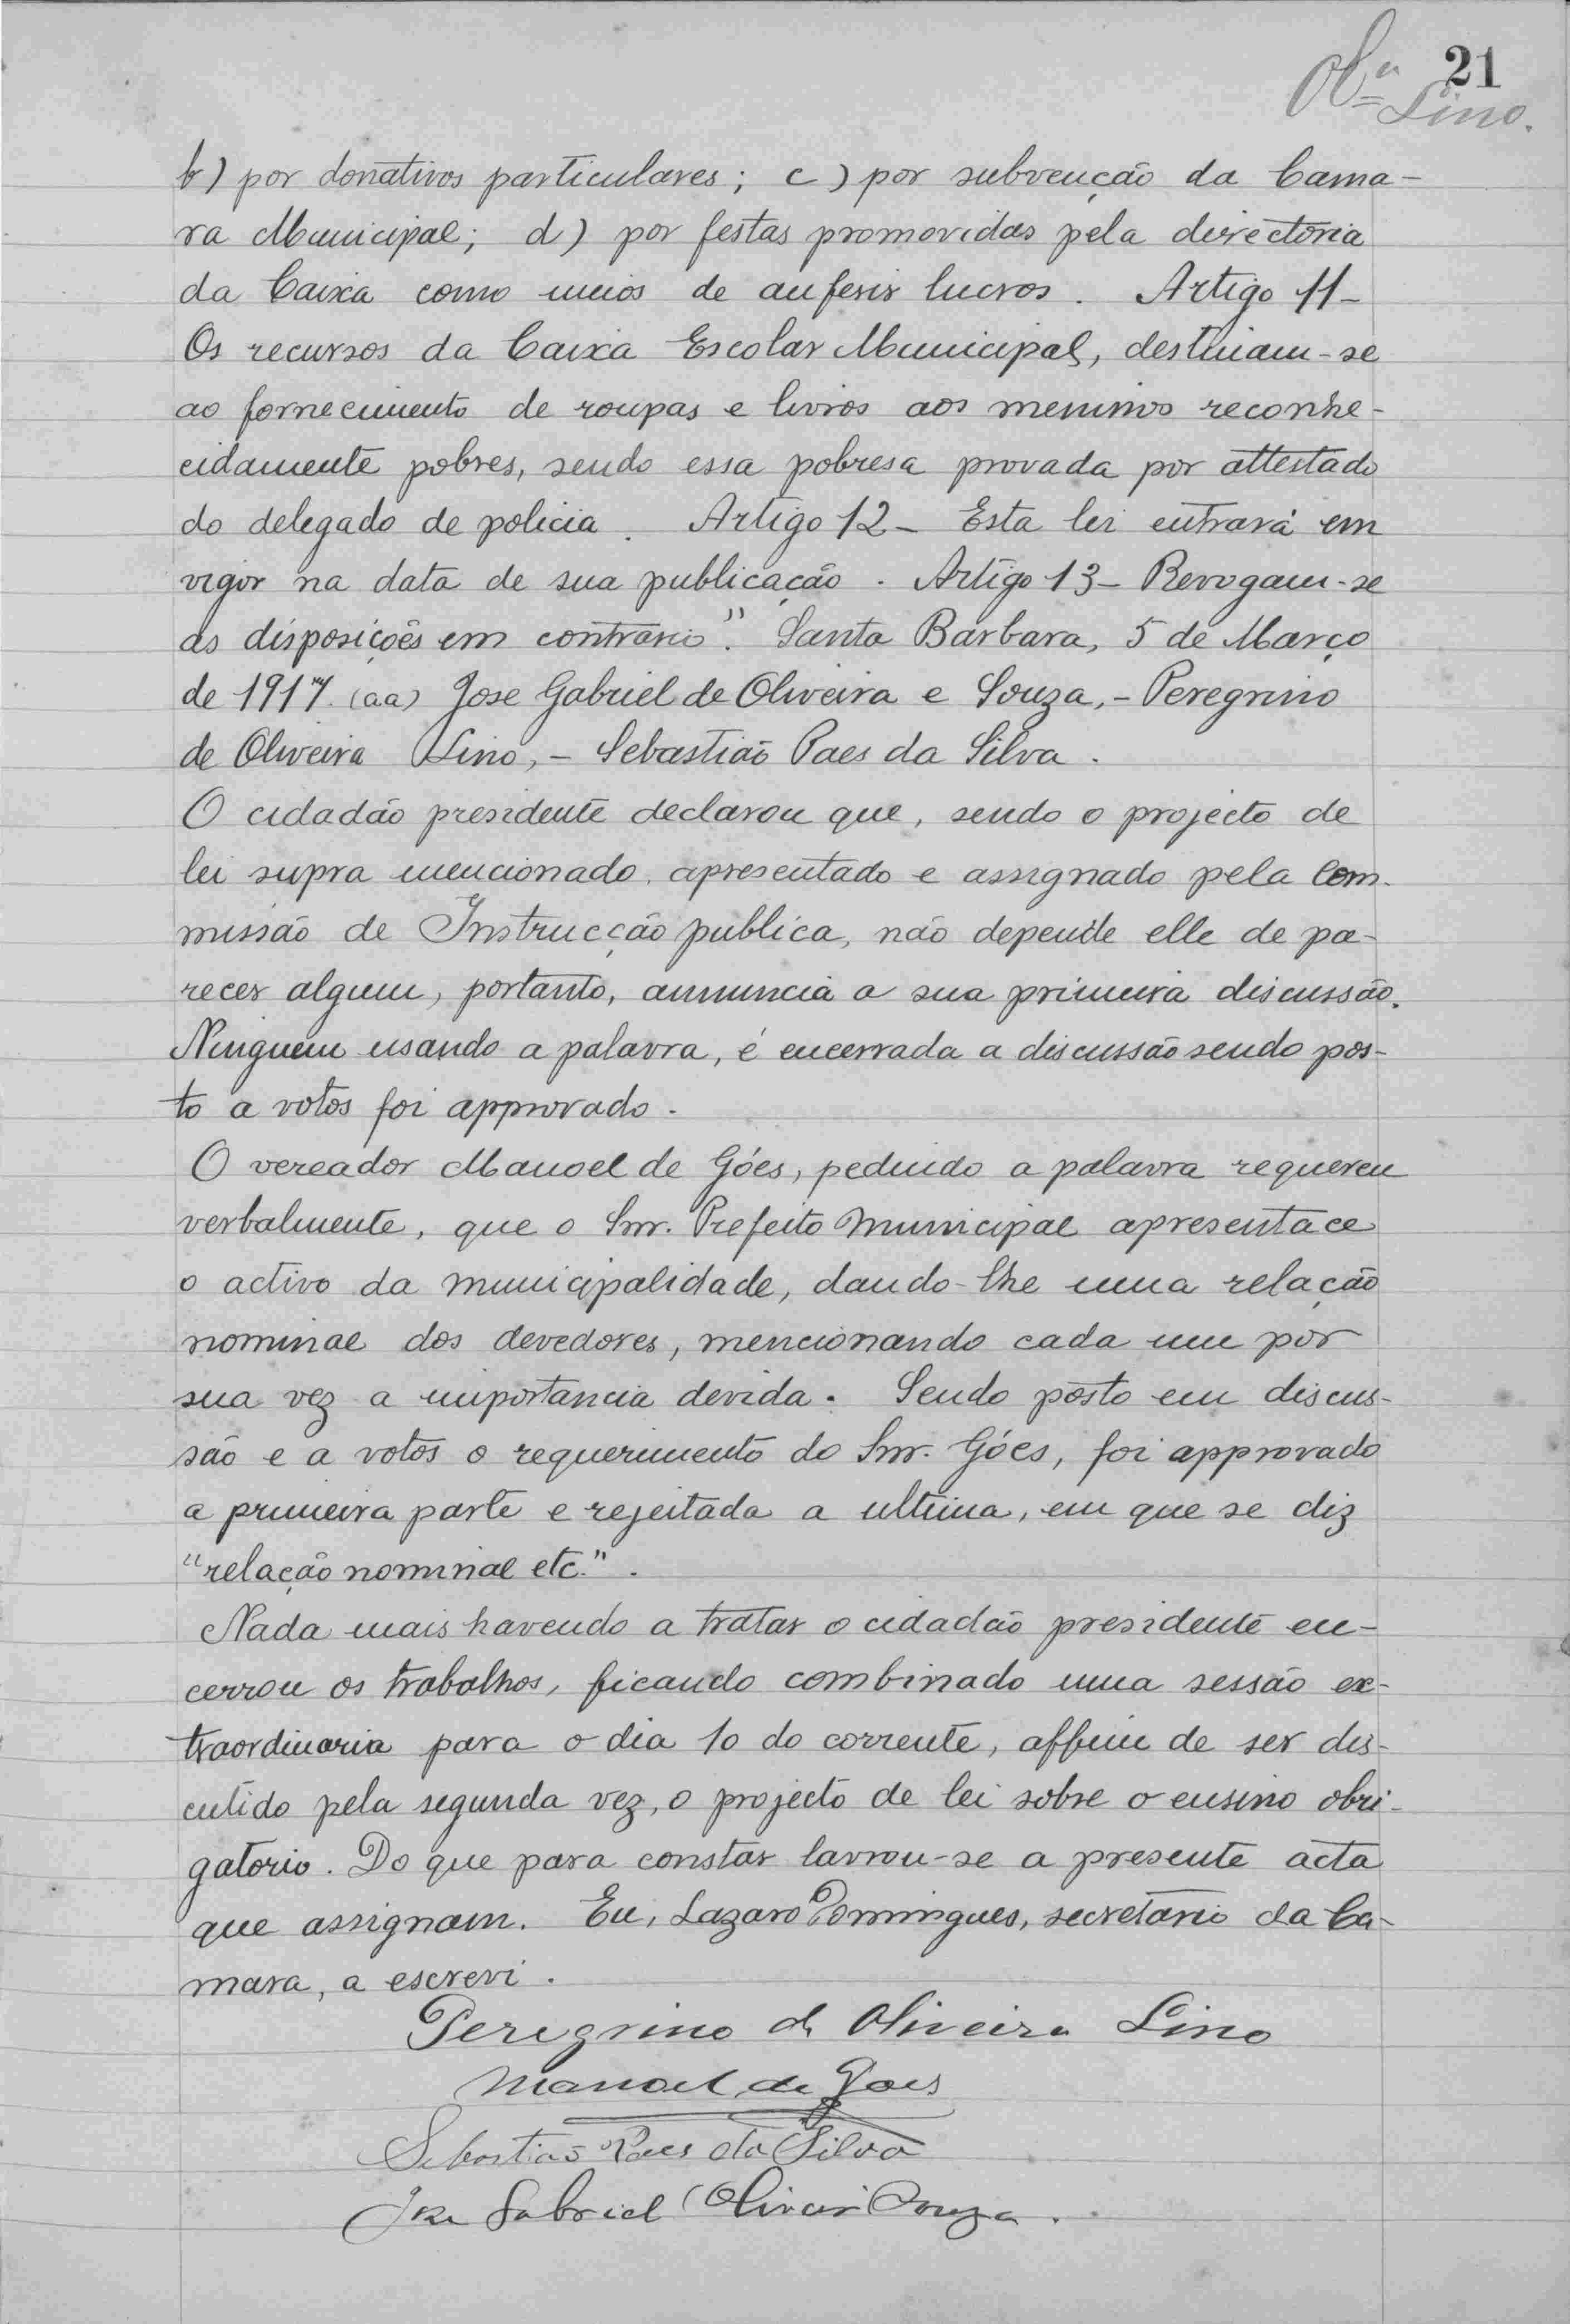 21
Olª Lino.
b) por donativos particulares; c) por subvenção da Cama-
ra Municipal; d) por festas promovidas pela directoria
da Caixa como meios de auferir lucros. Artigo 11-
Os recursos da Caixa Escolar Municipal, destinam-se
ao fornecimento de roupas e livros aos meninos reconhe-
cidamente pobres, sendo essa pobresa provada por attestado
do delegado de policia. Artigo 12- Esta lei entrará em
vigor na data de sua publicação. Artigo 13- Revogam-se
as disposições em contrario". Santa Barbara, 5 de Março
de 1917. (aa) Jose Gabriel de Oliveira e Souza,- Peregrino
de Oliveira Lino,- Sebastião Paes da Silva.
O cidadão presidente declarou que, sendo o projecto de
lei supra mencionado, apresentado e assignado pela Com-
missão de Instrucção publica, não depende elle de pa-
recer algum, portanto, annuncia a sua primeira discussão.
Ninguem usando a palavra, é encerrada a discussão sendo pos-
to a votos foi approvado.
O vereador Manoel de Góes, pedindo a palavra requereu
verbalmente, que o Snr. Prefeito Municipal apresentace
o activo da municipalidade, dando-lhe uma relação
nominal dos devedores, mencionando cada um por
sua vez a importancia devida. Sendo posto em discus-
são e a votos o requerimento do Snr. Góes, foi approvado
a primeira parte e rejeitada a ultima, em que se diz
"relação nominal etc.".
Nada mais havendo a tratar o cidadão presidente en-
cerrou os trabalhos, ficando combinado uma sessão ex-
traordinaria para o dia 10 do corrente, affim de ser dis-
cutido pela segunda vez, o projecto de lei sobre o ensino obri-
gatorio. Do que para constar lavrou-se a presente acta
que assignam. Eu, Lazaro Domingues, secretario da Ca-
mara, a escrevi.
Peregrino de Oliveira Lino
Manoel de Goes
Sebastião Paes da Silva
Jose Gabriel Oliveira Souza.